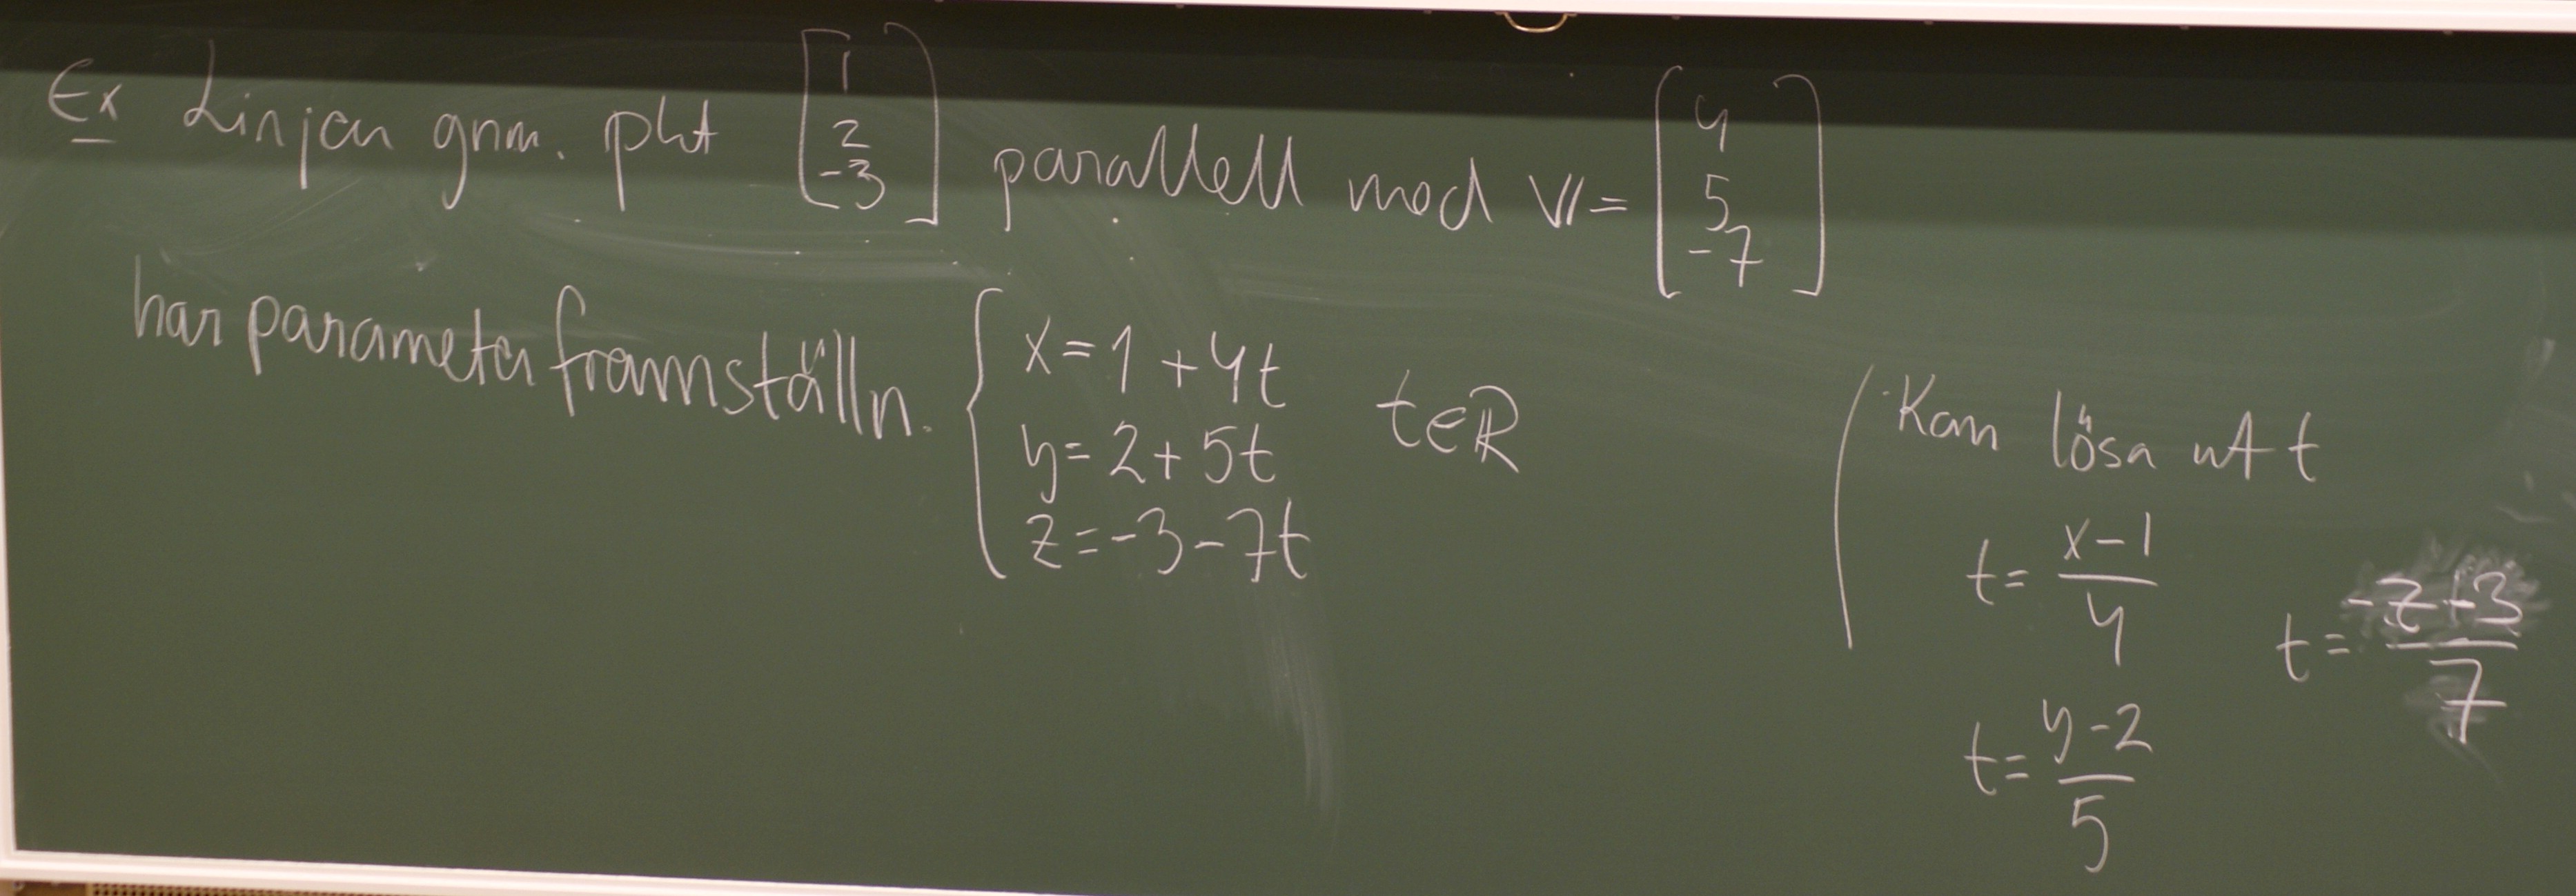 Ex Linjen gnm. pkt [1 2 -3] parallell med v = [4 5 -7]
har parameterframställn. { x = 1 + 4t
y = 2 + 5t t∈ℝ
z = -3 - 7t
Kan lösa ut t
t = (x-1)/4
t = (-z+3)/7
t = (y-2)/5